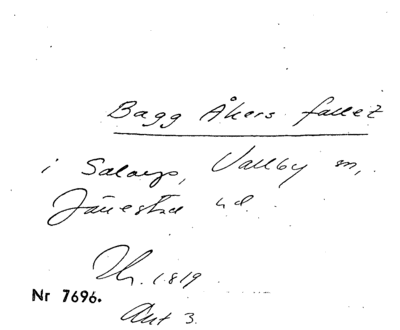 Bagg Åkers fallet
i Salarp, Vallby sn,
Järrestad hd.
Th. 1819
Nr 7696.
Ant 3.